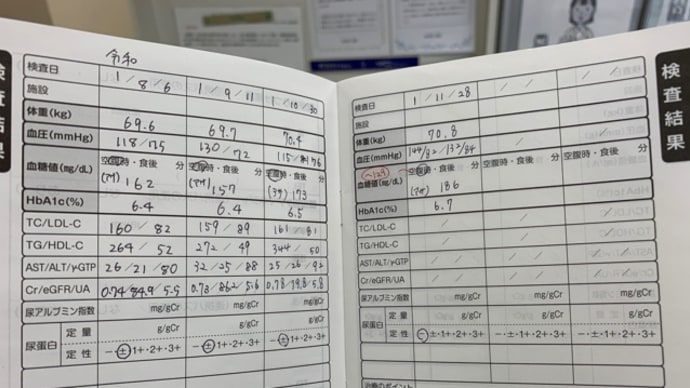 検査結果
令和
検査日 1/8/6 1/9/11 1/10/30
施設
体重(kg) 69.6 69.7 70.4
血圧(mmHg) 118/75 130/72 115/76
血糖値(mg/dL) 空腹時・食後 分 162 空腹時・食後 分 157 空腹時・食後 分 173
HbA1c(%) 6.4 6.4 6.5
TC/LDL-C 160/82 159/89 161/81
TG/HDL-C 264/52 272/49 344/50
AST/ALT/γ-GTP 26/21/80 32/25/88 25/26/92
Cr/eGFR/UA 0.74/84.9/5.5 0.73/86.2/5.6 0.78/79.8/5.8
尿アルブミン指数 mg/gCr mg/gCr mg/gCr
尿蛋白 定量 g/gCr g/gCr g/gCr
定性 −・±・1+・2+・3+ −・±・1+・2+・3+ −・±・1+・2+・3+
検査結果
検査日 1/11/28 / / / /
施設
体重(kg) 70.8
血圧(mmHg) 144/82/132/84 / /
血糖値(mg/dL) 空腹時・食後 分 186 空腹時・食後 分 空腹時・食後 分
HbA1c(%) 6.7
TC/LDL-C / / /
TG/HDL-C / / /
AST/ALT/γ-GTP / / / / / /
Cr/eGFR/UA / / / / / /
尿アルブミン指数 mg/gCr mg/gCr mg/gCr
尿蛋白 定量 g/gCr g/gCr g/gCr
定性 −・±・1+・2+・3+ −・±・1+・2+・3+ −・±・1+・2+・3+
治療のポイント